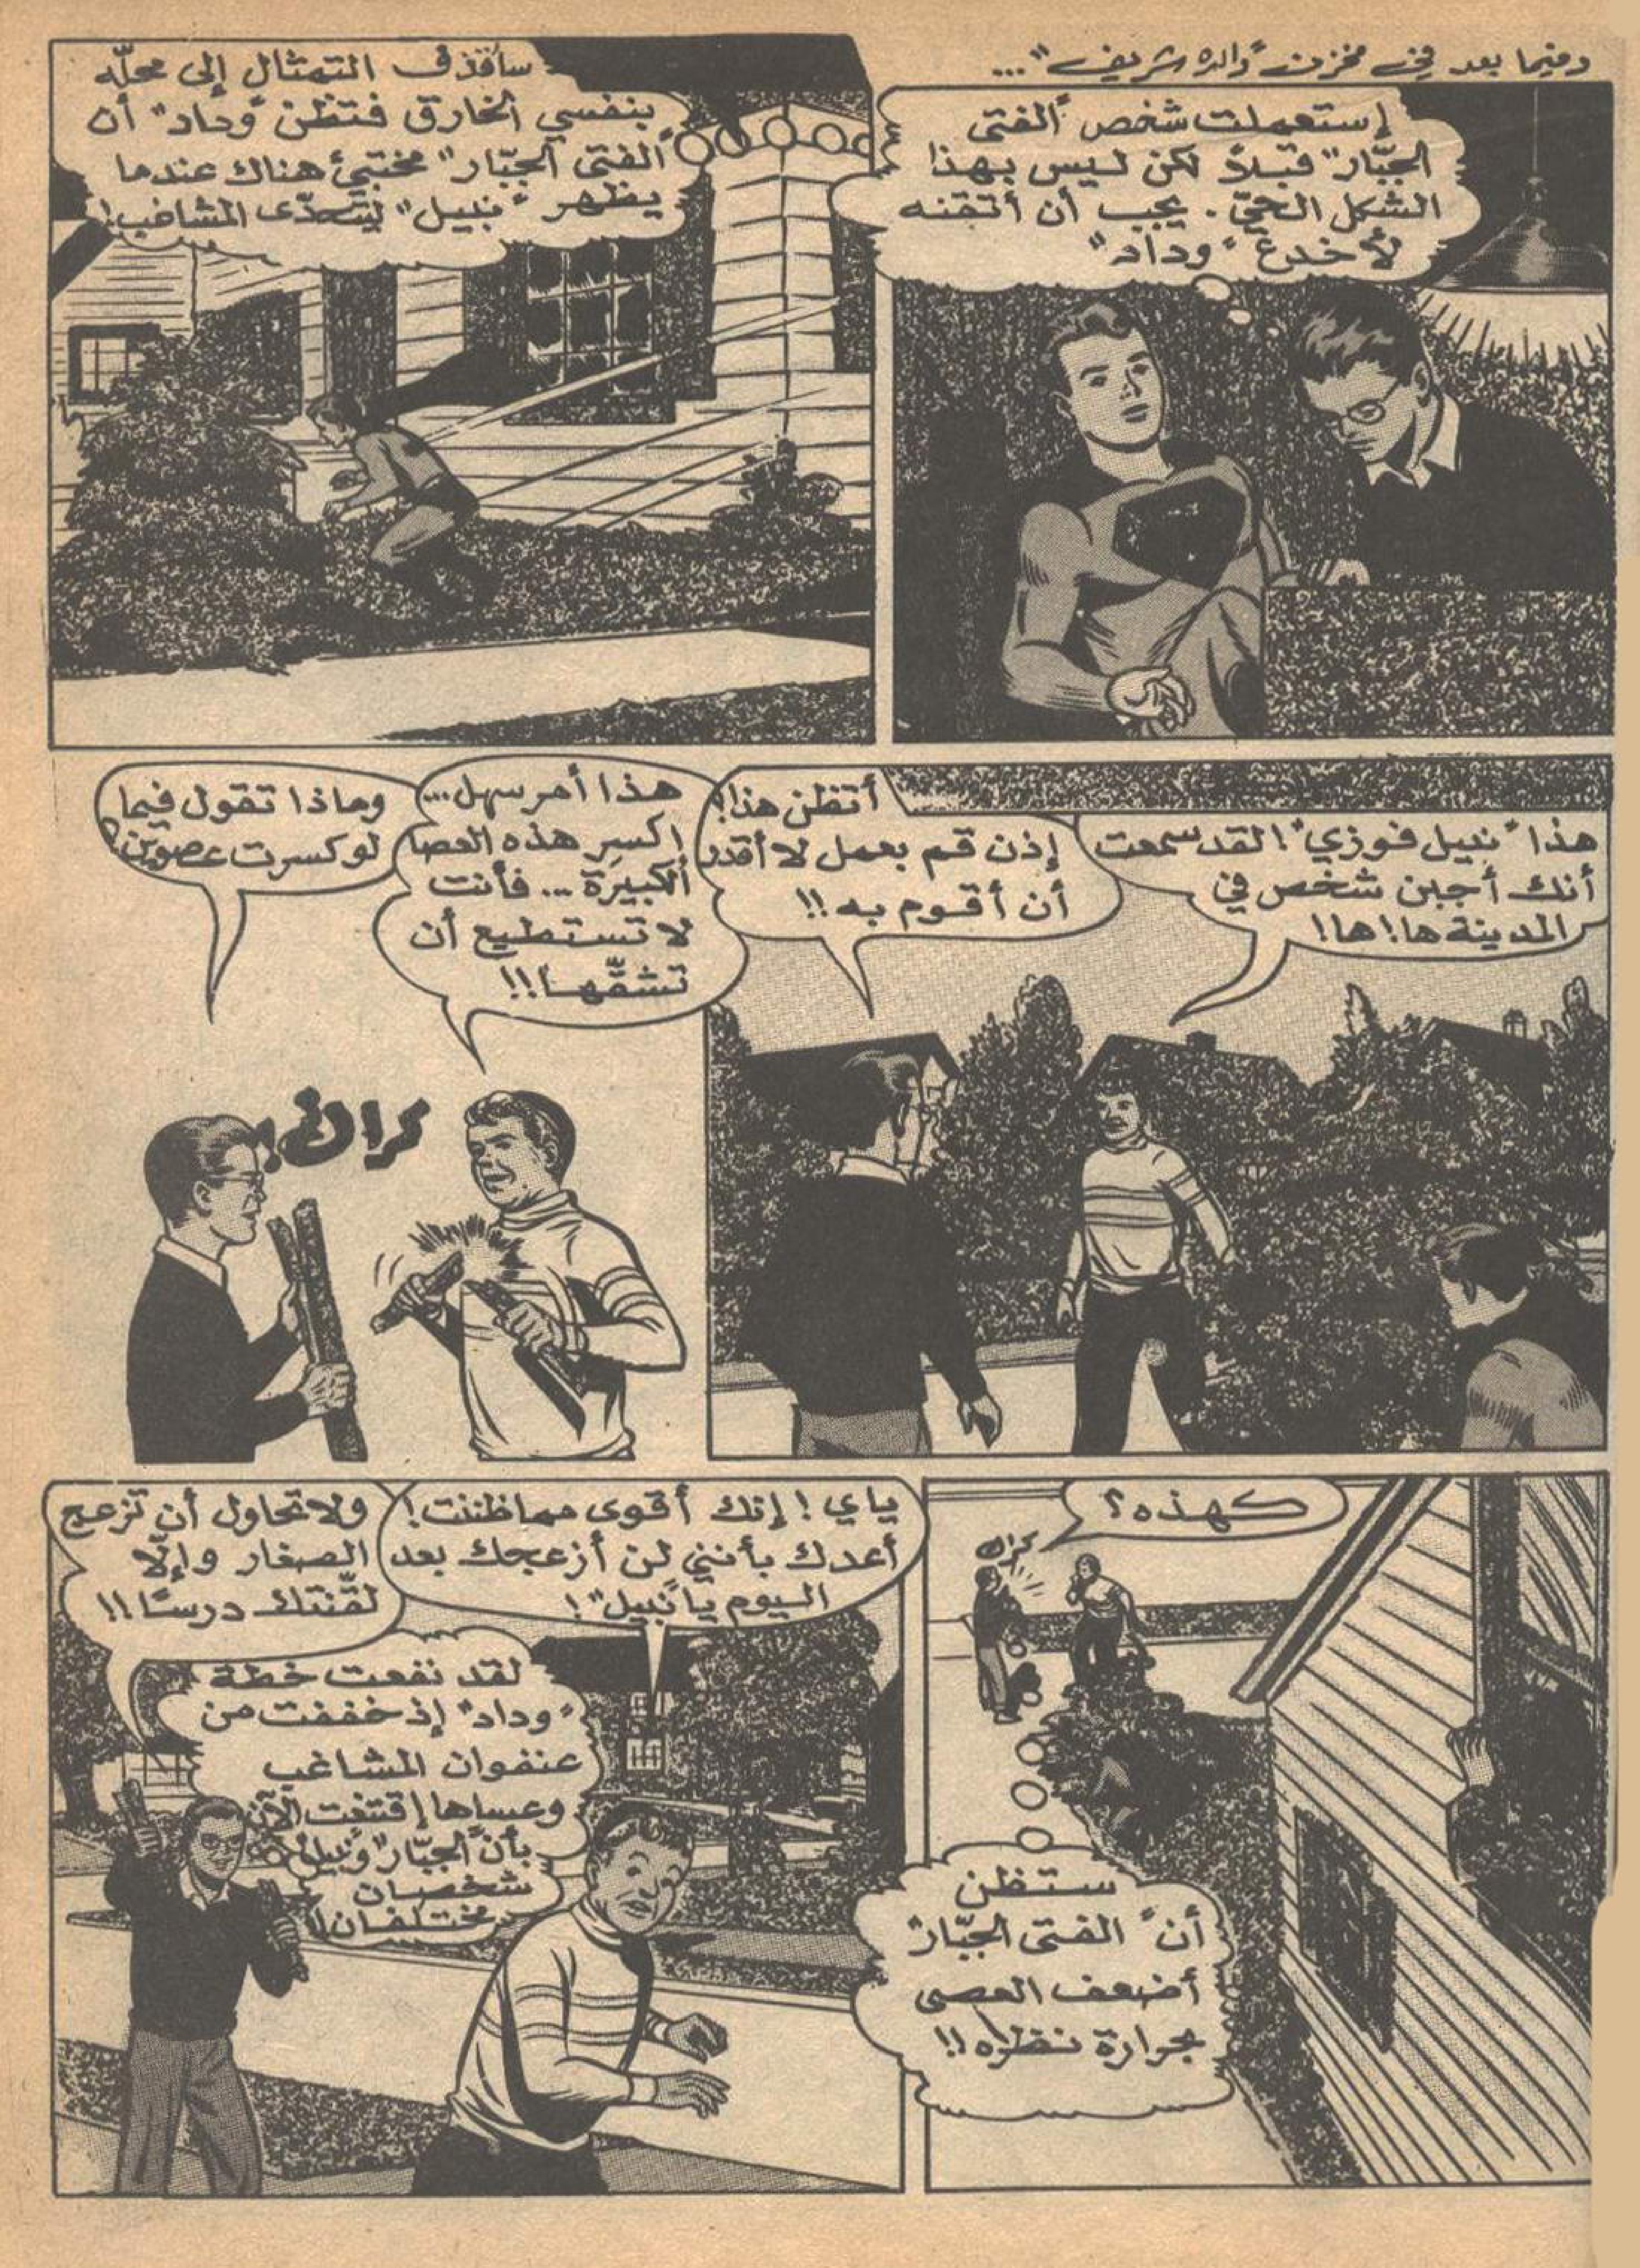 وفيما بعد في مخزن "والده شريف"...
إستعملت شخص "الفتى
الجبّار" قبلاً لكن ليس بهذا
الشكل الحيّ. يجب أن أتقنه
لأخدع "وداد"
سأقذف التمثال إلى محلّه
بنفسي الخارق فتظن "وداد" أن
"الفتى الجبّار" مختبئ هناك عندما
يظهر "نبيل" ليتحدّى المشاغب!
هذا "نبيل فوزي"! لقد سمعت
أنك أجبن شخص في
المدينة ها! ها!
أتظن هذا!؟
إذن قم بعمل لا أقدر
أن أقوم به!!
هذا أمر سهل...
اكسِر هذه العصا
الكبيرة .. فأنت
لا تستطيع أن
تشقّها!!
وماذا تقول فيما
لو كسرت عصوين؟
كراك!
كهذه؟
كراك
ستظن
أن "الفتى الجبّار"
أضعف العصي
بحرارة نظره!!
ياي! إنك أقوى مما ظننت!
أعدك بأنني لن أزعجك بعد
اليوم يا "نبيل"!
ولا تحاول أن تزعج
الصغار وإلّا
لقّنتك درسًا!!
لقد نفعت خطة
"وداد" إذ خففت من
عنفوان المشاغب
وعساها إقتنعت الآن
بأن "الجبّار" و"نبيل"
شخصيان
مختلفان!